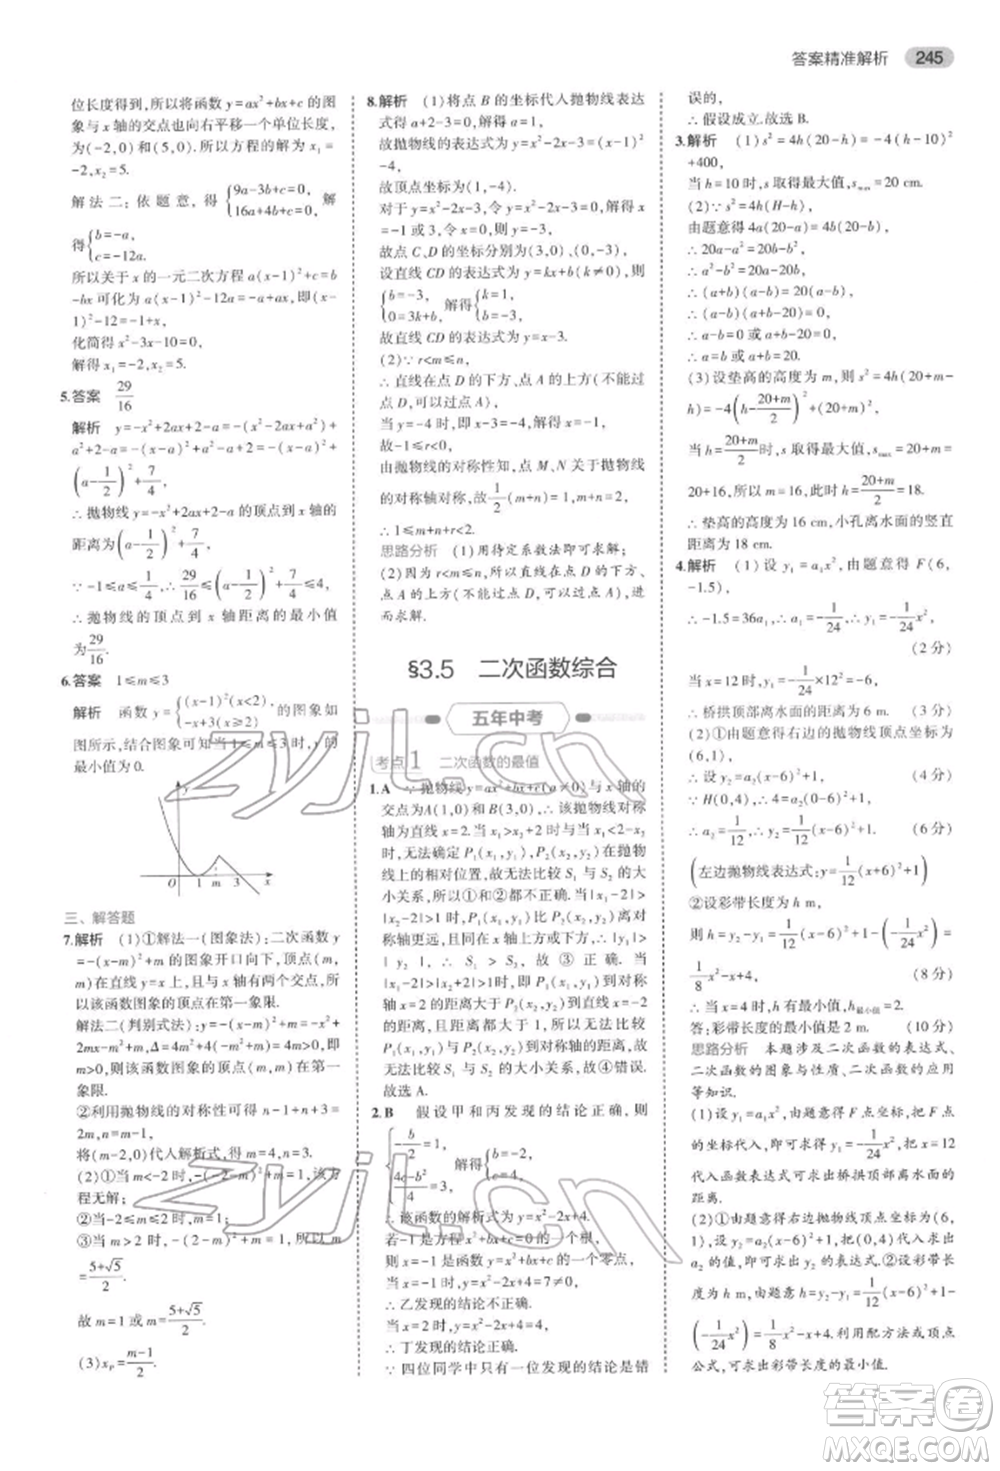 答案精准解析 245
位长度得到,所以将函数 y=ax²+bx+c 的图
象与 x 轴的交点也向右平移一个单位长度,
为(-2,0)和(5,0).所以方程的解为 x₁=
-2,x₂=5.
解法二:依题意,得{9a-3b+c=0, 16a+4b+c=0,解
得{b=-a, c=-12a.
所以关于 x 的一元二次方程 a(x-1)²+c=b-
bx 可化为 a(x-1)²-12a=-a+ax,
化简得 x²-3x-10=0,
解得 x₁=-2,x₂=5.
5.答案 29/16
解析 y=-x²+2ax+2-a=-(x-a)²+
a²-a+2=-(x-a)²+(a-1/2)²+7/4,
∴抛物线 y=-x²+2ax+2-a 的顶点到 x 轴的
距离为(a-1/2)²+7/4,
∵-1≤a≤1/4,∴29/16≤(a-1/2)²+7/4≤4,
∴抛物线的顶点到 x 轴距离的最小值
为29/16.
6.答案 1≤m≤3
解析 函数 y={(x-1)²(x<2), -x+3(x≥2)的图象
如图所示,结合图象可知,当 1≤m≤3 时,y 的
最小值为 0.
y
O 1 m 3 x
三、解答题
7.解析 (1)①解法一(图象法):二次函数 y
=-(x-m)²+m 的图象开口向下,顶点(m,
m)始终在直线 y=x 上,当 m>0 时,m>0,所
以该函数图象的顶点在第一象限.
解法二(判别式法):y=-(x-m)²+m=-x²+
2mx-m²+m,Δ=4m>0,函数图象与 x 轴有两
个交点,所以该函数图象的顶点在第一象限.
②利用抛物线的对称性可得 n-1+n+1=
2m,n=m-1.
将(m-2,0)代入解析式,得 m=4,n=3.
(2)①当 m<-2 时,(-2-m)²=1,该方
程无解;
②当-2≤m≤1 时,m=1;
③当 m>1 时,-(1-m)²+m=-1,解得 m
=(5+√5)/2.
故 m=1 或 m=(5+√5)/2.
(3)x_P=(m-1)/2.
8.解析 (1)将点 B 的坐标代入抛物线表达
式得 a+2-3=0,解得 a=1,
故抛物线的表达式为 y=x²-2x-3=(x-1)²
-4,
故顶点坐标为(1,-4).
对于 y=x²-2x-3,令 y=x²-2x-3=0,解得 x=
3 或 x=-1,令 x=0,则 y=-3,
故点 C、D 的坐标分别为(3,0)、(0,-3),
设直线 CD 的表达式为 y=kx+b(k≠0),则
{b=-3, 0=3k+b,解得{k=1, b=-3,
故直线 CD 的表达式为 y=x-3.
(2)∵r<m≤n,
∴直线在点 D 的下方、点 A 的上方(不能过
点 D,可以过点 A),
当 y=-4 时,y=x-3=-4,解得 x=-1,
故-1≤r<0.
由抛物线的对称性知,点 M、N 关于抛物线
的对称轴对称,故1/2(m+n)=1,即 m+n=2,
∴1≤m+n+r<2.
思路分析 (1)用待定系数法即可求解;
(2)因为 r<m≤n,所以直线在点 D 的下方、
点 A 的上方(不能过点 D,可以过点 A),进
而求解.
§3.5 二次函数综合
五年中考
考点1 二次函数的最值
1.A ∵抛物线 y=ax²+bx+c(a≠0)与 x 轴的
交点为A(1,0)和B(3,0),∴该抛物线对称
轴为直线 x=2,当 x₁>x₂+2 时与当 x₁<x₂-2
时,无法确定 P₁(x₁,y₁)、P₂(x₂,y₂)在抛物
线上的相对位置,故无法比较 S₁ 与 S₂ 的
大小关系,所以①和②错误.当|x₁-2|>|x₂
-2|>1 时,P₁(x₁,y₁)比 P₂(x₂,y₂)离对
称轴更远,且同在 x 轴上方或下方,∴|y₁|>
|y₂|,∴S₁>S₂,故③正确.当|x₁-
2|>|x₂+2|>1 时,即在 x 轴上 x₁ 到 2 的距
离比 x₂ 到-2 的距离大,且都大于 1,此时
无法比较 P₁(x₁,y₁)与 P₂(x₂,y₂)到对称轴
的距离大小,所以无法比较 S₁ 与 S₂ 的大小
关系,所以④错误.
故选 A.
2.B 假设甲和丙发现的结论正确,则
{-b/2=1, (4c-b²)/4=3,解得{b=-2, c=4.
∴该函数的解析式为 y=x²-2x+4.
若-1 是方程 x²+bx+c=0 的一个根,
则 x=-1 是函数 y=x²+bx+c 的一个零点,
当 x=-1 时,y=x²-2x+4=7≠0,
∴乙发现的结论不正确.
当 x=2 时,y=x²-2x+4=4,
∴丁发现的结论正确.
∵四位同学中只有一位发现的结论是错
误的,
∴假设成立.故选 B.
3.解析 (1)s²=4h(20-h)=-4(h-10)²
+400,
当 h=10 时,s 取得最大值,s_max=20 cm.
(2)∵s²=4h(H-h),
由题意得 4a(20-a)=4b(20-b),
∴20a-a²=20b-b²,
∴a²-b²=20(a-b),
∴(a+b)(a-b)=20(a-b),
∴(a-b)(a+b-20)=0,
∴a-b=0 或 a+b-20=0,
∴a=b 或 a+b=20.
(3)设垫高的高度为 m,则 s²=4h(20+m-
h)=-4(h-(20+m)/2)²+(20+m)²,
当 h=(20+m)/2 时,s 取得最大值,s_max=20+m=
20+16,所以 m=16,此时 h=(20+m)/2=18.
∴垫高的高度为 16 cm,小孔离水面的竖直
距离为 18 cm.
4.解析 (1)设 y₁=a₁x²,由题意得 F(6,
-1.5),
∴-1.5=36a₁,∴a₁=-1/24,∴y₁=-1/24x².
(2 分)
当 x=12 时,y₁=-1/24×12²=-6,
∴桥拱顶部离水面高度为 6 m. (4 分)
(2)①由题意得右边的抛物线顶点为
(6,1),
∴设 y₂=a₂(x-6)²+1,
∵H(0,4),∴4=a₂(0-6)²+1,
∴a₂=1/12,∴y₂=1/12(x-6)²+1. (6 分)
(左边抛物线表达式:y=1/12(x+6)²+1)
②设彩带长度为 h m,
则 h=y₂-y₁=1/12(x-6)²+1-(-1/24x²)=
1/8x²-x+4, (8 分)
∴当 x=4 时,h 有最小值,h最小值=2.
答:彩带长度的最小值是 2 m. (10 分)
思路分析 本题涉及二次函数的表达式、
二次函数的图象与性质、二次函数的应用
等知识.
(1)设 y₁=a₁x²,由题意得出点 F 坐标,将 F
的坐标代入,可得 y₁=-1/24x²,再将 x=12
代入函数关系式,就可求出桥拱顶部离水面
距离.
(2)①由题意得右边抛物线顶点坐标为(6,
1),设 y₂=a₂(x-6)²+1,把(0,4)代入求出
a₂ 的值即可.②设彩带长度为 h m,则
h=y₂-y₁=1/12(x-6)²+1-
(-1/24x²)=1/8x²-x+4,利用配方法或顶点
公式,可得彩带长度的最小值.
zyjl.cn
zyjl.cn
答案圈
MXQE.COM